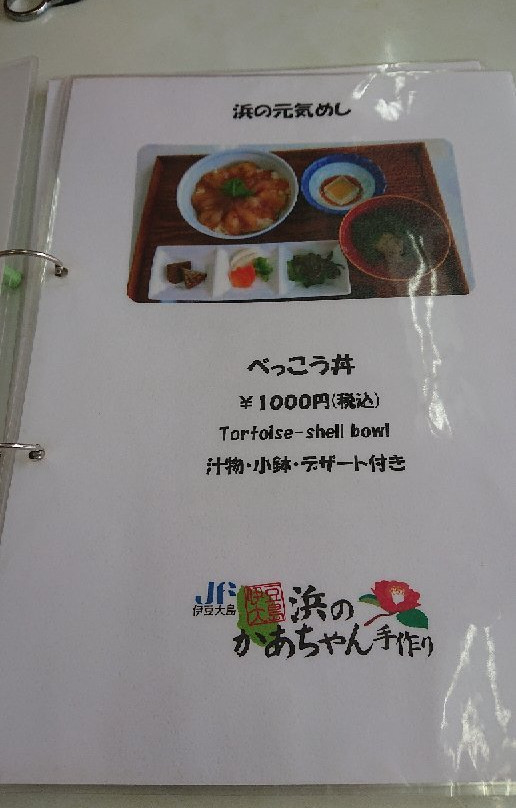 浜の元気めし
べっこう丼
￥1000円(税込)
Tortoise-shell bowl
汁物・小鉢・デザート付き
JF
伊豆大島
伊豆大島
浜の
かあちゃん手作り